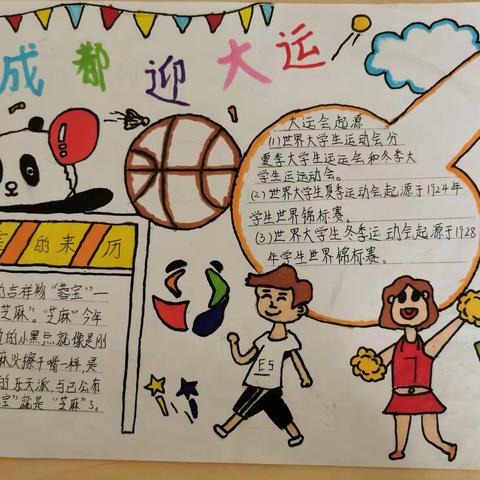 成都迎大运
大运会起源
(1)世界大学生运动会分
夏季大学生运运会和冬季大
学生运运动会。
(2)世界大学生夏季运动会起源于1924年
学生世界锦标赛。
(3)世界大学生冬季运动会起源于1928
年学生世界锦标赛。
的来历
的吉祥物“蓉宝”一
芝麻”。“芝麻”今年
的小黑点就像是刚
麻没擦干嘴一样,是
的乐天派,与己公有
宝”就是“芝麻”3。
ES